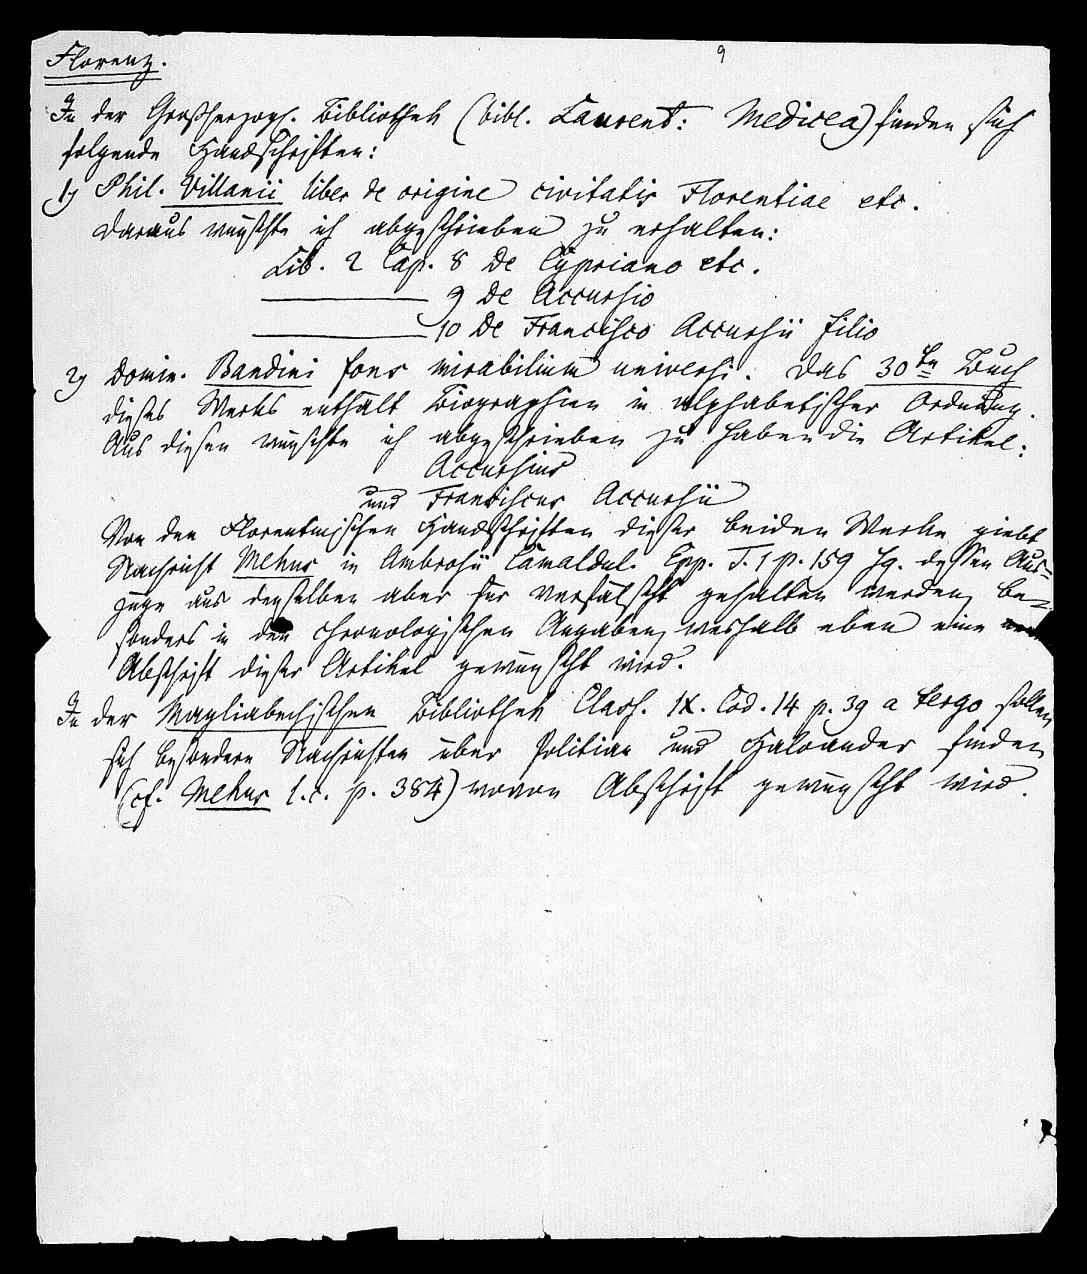 9
Florenz.
In der Großherzogl. Bibliothek (bibl. Laurent: Medicea) finden sich
folgende Handschriften:
1) Phil. Villanii liber de origine civitatis Florentiae etc.
daraus wünschte ich abgeschrieben zu erhalten:
Lib. 2 Cap. 8 de Cypriano etc.
——— 9 de Accursio
——— 10 de Francisco Accursii filio
2) Domin. Bandini fons mirabilium universi. Das 30te Buch
dieses Werks enthält Biographien in alphabetischer Ordnung.
Aus diesen wünschte ich abgeschrieben zu haben die Artikel:
Accursius
und Franciscus Accursii
Von den Florentinischen Handschriften dieser beiden Werke giebt
Nachricht Mehus in Ambrosii Camaldul. Epp. T. 1 p. 159 sq. dessen Aus=
züge aus denselben aber für verfälscht gehalten werden, be=
sonders in den chronologischen Angaben, weshalb eben eine
Abschrift dieser Artikel gewünscht wird.
In der Magliabechischen Bibliothek Class. IX. Cod. 14 p. 39 a tergo sollen
sich besondere Nachrichten über Politian und Haloander finden
(cf. Mehus l. c. p. 384) wovon Abschrift gewünscht wird.